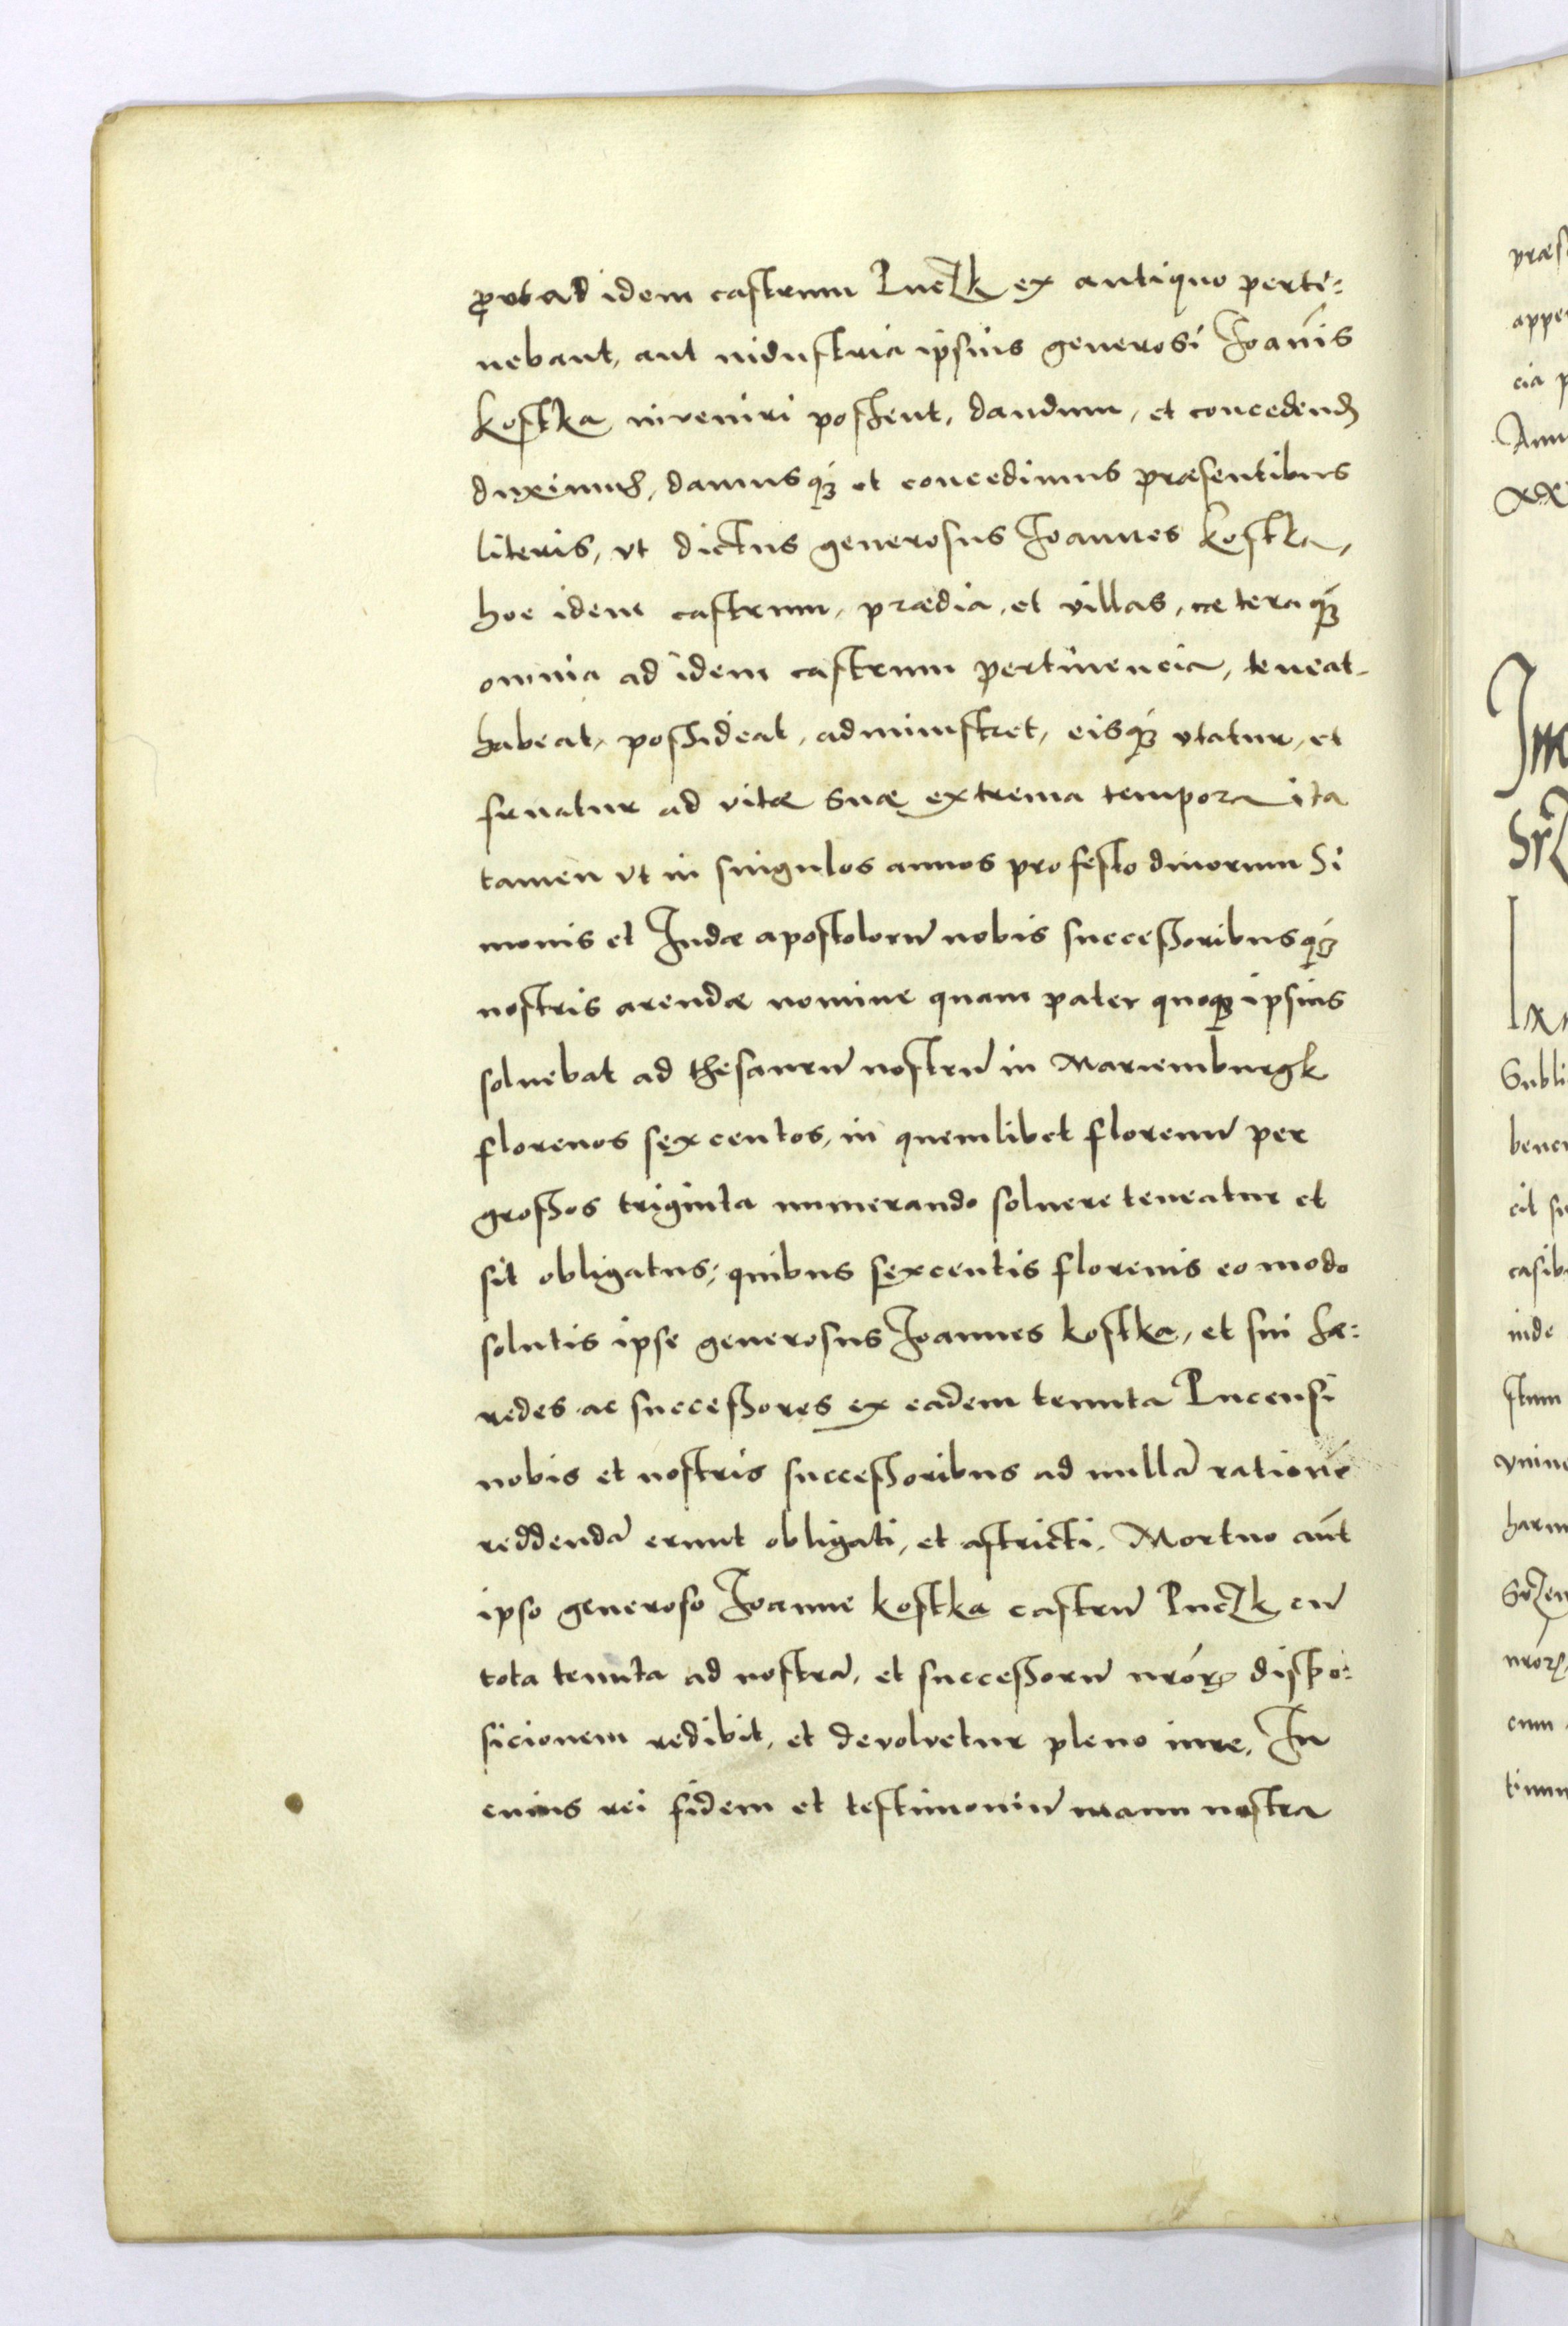 ꝓut ad idem castrum Puczk ex antiquo perti:
nebant, aut industria ipsius generosi Joan̄is
kostka inveniri possent, dandum, et concedend̄
duximus, damusq́ꝫ et concedimus præsentibus
literis, vt dictus generosus Joannes kostka,
hoc idem castrum, prædia, et villas, cæteraq́ꝫ
omnia ad idem castrum pertinencia, teneat,
habeat, possideat, administret, eisq́ꝫ vtatur, et
fruatur ad vitæ suæ extrema tempora ita
tamen vt in singulos annos pro festo diuorum Si
monis et Judæ apostolorū nobis successoribusq́ꝫ
nostris arendæ nomine quam pater quoqꝫ ipsius
soluebat ad thesaurū nostrū in Mariemburgk
florenos sexcentos, in quemlibet florenū per
grossos triginta numerando soluere teneatur et
sit obligatus; quibus sexcentis florenis eo modo
solutis ipse generosus Joannes kostka, et sui hæ:
redes ac successores ex eadem tenuta Pucensi
nobis et nostris successoribus ad nullā rationē
reddendā erunt obligati, et astricti. Mortuo aūt
ipso generoso Joanne kostka castrū Puczk cū
tota tenuta ad nostrā, et successorū nr̄oꝝ dispo:
sicionem redibit, et devolvetur pleno iure. In
cuius rei fidem et testimoniū manu nostra
præs
appe
cia p
Ann
XX
Inc
Sub li
bene
cit su
casib
inde
stum
vniue
harum
nroꝝ
cum
timu